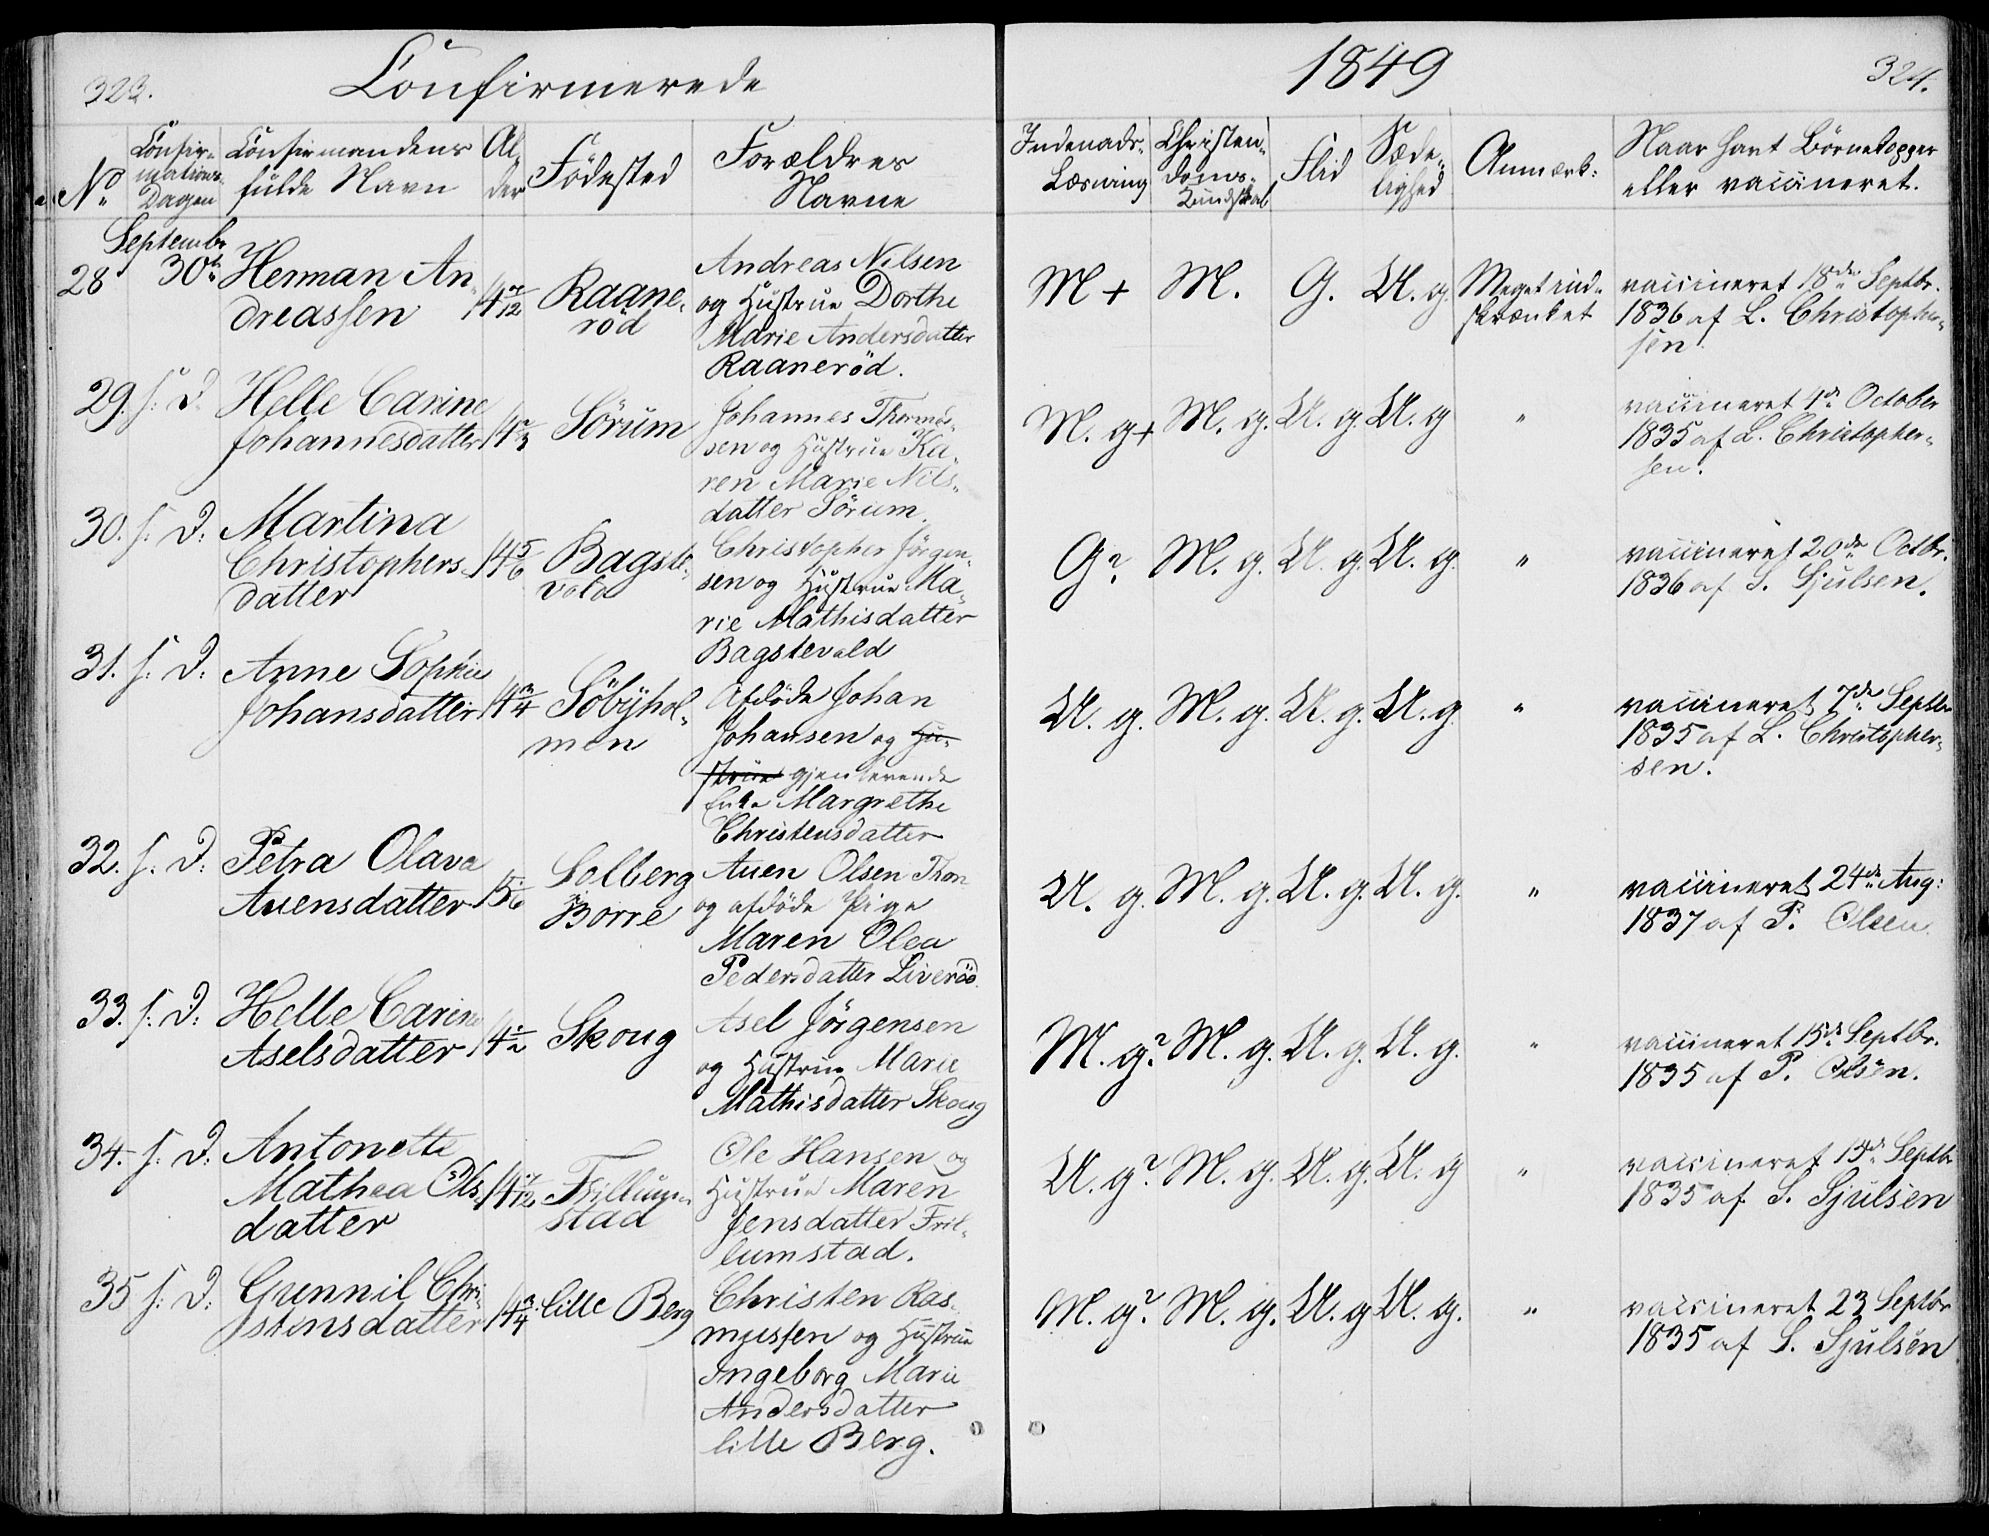 323. Confirmerede
1849 324.
No Confirmations Dagen Confirmandens fulde Navn Alder Födested Forældres Navne
Indenads-Læsning Christendoms-Kundskab Flid Sædelighed Anmærk: Naar havt Börnekopper eller vaccineret.
Septembr
28 30te Herman An-
dreassen
14 7/12
Raane-
röd
Andreas Nilsen
og Hustrue Dorthe
Marie Andersdatter
Raaneröd.
M + M. G. U. g. Meget ind-
skrænket
vaccineret 18de Septbr.
1836 af L. Christopher-
sen.
29. s. D. Helle Carine
Johannesdatter
14
Sörum
Johannes Thormo-
sen og Hustrue Ka-
ren Marie Nils-
datter Sörum.
M. g + M. g. U. g. U. g "
vaccineret 1de October
1835 af L. Christopher-
sen.
30. s. D: Martina
Christophers-
datter
14 5/6
Bagste-
vold
Christopher Jörgen-
sen og Hustrue Ma-
rie Mathisdatter
Bagstevold
G? M. g. U. g. U. g. "
vaccineret 20de Octbr.
1836 af S. Sjulsen.
31. s. D: Anne Sophie
Johansdatter
14 3/4
Söbyhol-
men
Afdöde Johan
Johansen og Hu-
strue gjenlevende
Enke Margrethe
Christensdatter
U. g. M. g. U. g. U. g. "
vaccineret 7de Septbr
1835 af L. Christopher-
sen.
32. s. D: Petra Olava
Auensdatter
15 1/6
Solberg
i Borre
Auen Olsen Thon
og afdöde Pige
Maren Olea
Pedersdatter Liveröd.
U. g. M. g. U. g. U. g. "
vaccineret 24de Aug:
1837 af P. Olsen.
33. s. D: Helle Carine
Aselsdatter
14 1/2
Skoug
Asel Jörgensen
og Hustrue Marie
Mathisdatter Skoug
M. g? M. g. U. g. U. g. "
vaccineret 15de Septbr.
1835 af P. Olsen.
34. s. D: Antonette
Mathea Ols-
datter
14 7/12
Frillum-
stad
Ole Hansen og
Hustrue Maren
Jensdatter Fril-
lumstad.
U. g? M. g. U. g. U. g "
vaccineret 15de Septbr
1835 af S. Sjulsen
35 s. D: Gunnil Chri-
stensdatter
14 3/4
lille Berg
Christen Ras-
mussen og Hustrue
Ingeborg Marie
Andersdatter
lille Berg.
M. g? M. g. U. g U. g. "
vaccineret 23 Septbr
1835 af S. Sjulsen